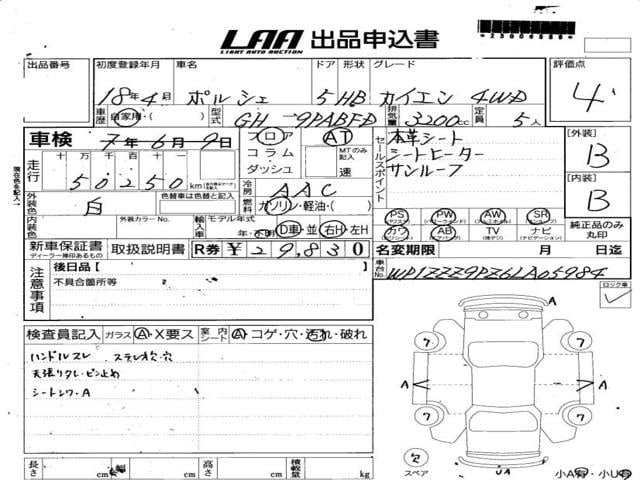 LAA 出品申込書
LIGHT AUTO AUCTION
*23006888*
出品番号 初度登録年月 車名 ドア 形状 グレード 評価点
18年4月 ポルシェ 5 HB カイエン 4WD 4
車歴 自家用・( ) 型式 GH-9PABFD 排気量 3200cc 定員 5人
車検 7年6月9日 フロア AT 本革シート [外装]
走行 十万千百十 コラム MTのみ記入 セールスポイント シートヒーター B
50250km ダッシュ 速 サンルーフ
現在色を記入→ 外装色 白 色替車は色替と記入 冷房 AAC [内装]
燃料 ガソリン・軽油・( ) B
内装色 外装カラーNo. 輸入車 モデル年式 PS PW AW SR
年・不明 D車・並 右H・左H カワ AB TV ナビ 純正品のみ丸印
新車保証書 取扱説明書 R券 ¥29,830 名変期限 月 日迄
ディーラー捺印あるもの
車台No. WP1ZZZ9PZ6LA05984
注意事項 後日品【 】 ロック車
不具合箇所等
検査員記入 ガラス A・X要ス 室内シート A・コゲ・穴・汚れ・破れ
ハンドルスレ ステレオ穴・穴
天張りタレ・ピン止め
シートシワ・A
7 7
A A
7 7
スペア UA 小A有・小U有
長さ cm 幅 cm 高さ cm 積載量 kg